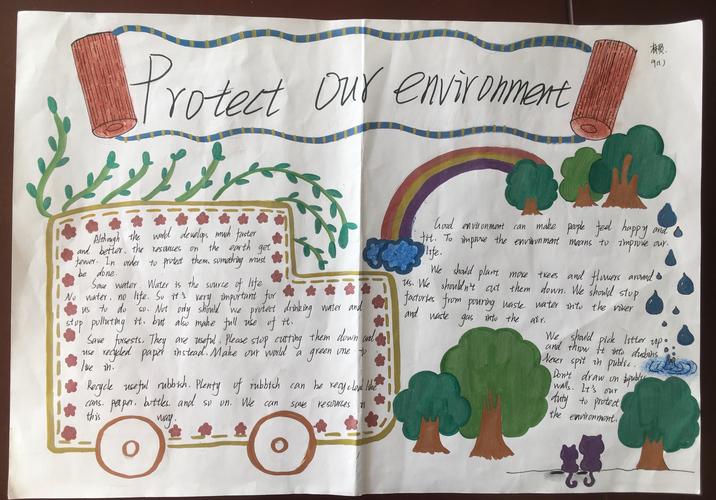 Protect our environment
9(1)
Although the world develops much faster
and better, the resources on the earth get
fewer. In order to protect them, something must
be done.
Save water. Water is the source of life.
No water, no life. So it's very important for
us to do so. Not only should we protect drinking water and
stop polluting it, but also make full use of it.
Save forests. They are useful. Please stop cutting them down and
use recycled paper instead. Make our world a green one to
live in.
Recycle useful rubbish. Plenty of rubbish can be recycled like
cans, paper, bottles and so on. We can save resources in
this way.
Good environment can make people feel happy and
fit. To improve the environment means to improve our
life.
We should plant more trees and flowers around
us. We shouldn't cut them down. We should stop
factories from pouring waste water into the river
and waste gas into the air.
We should pick litter up
and throw it into dustbins.
Never spit in public.
Don't draw on public
walls. It's our
duty to protect
the environment.